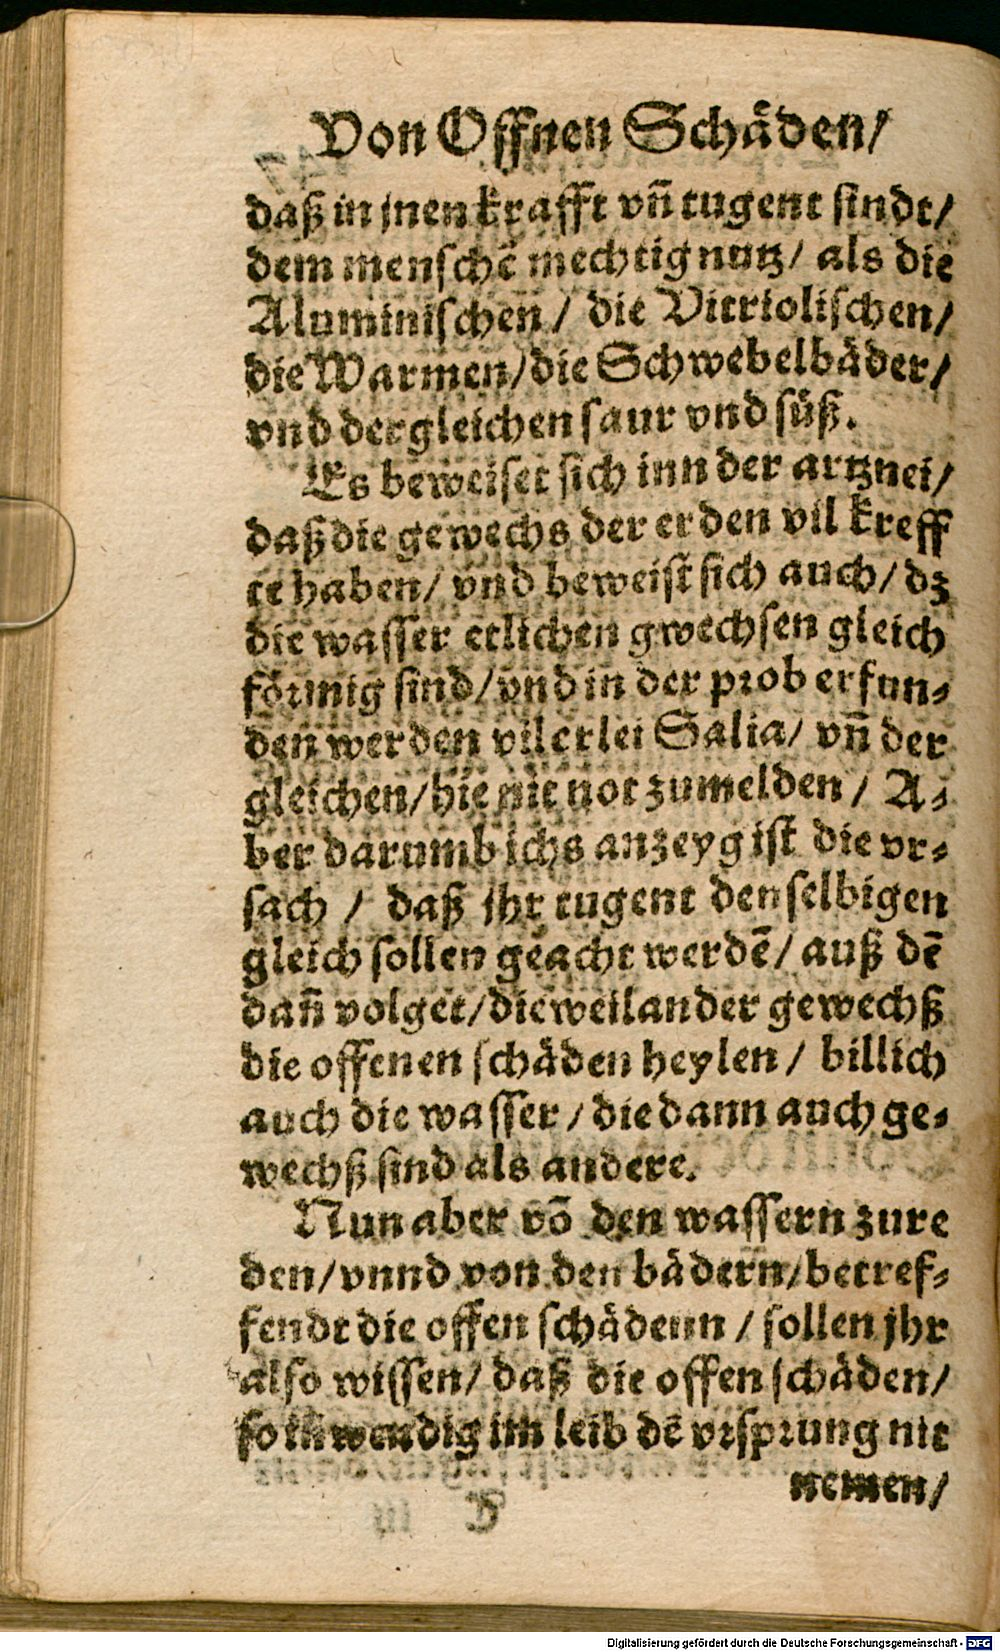 Von Offnen Schäden/
daß in jnen krafft vñ tugent sindt/
dem menschē mechtig nutz/ als die
Aluminischen/ die Vitriolischen/
die Warmen/die Schwebelbäder/
vnd dergleichen saur vnd süß.
Es beweiset sich inn der artznei/
daß die gewechs der erden vil kreff
te haben/ vnd beweist sich auch/ dz
die wasser etlichen gwechsen gleich
förmig sind/vnd in der prob erfun⸗
den werden vilerlei Salia/ vñ der
gleichen/hie nit not zumelden/ A⸗
ber darumb ichs anzeyg ist die vr⸗
sach / daß jhr tugent denselbigen
gleich sollen geacht werdē/ auß dē
dañ volget/dieweil ander gewechß
die offenen schäden heylen/ billich
auch die wasser/die dann auch ge⸗
wechß sind als andere.
Nun aber vō den wassern zure
den/vnnd von den bädern/betref⸗
fendt die offen schädenn/ sollen jhr
also wissen/ daß die offen schäden/
so inwendig im leib dē vrsprung nit
nemen/
Digitalisierung gefördert durch die Deutsche Forschungsgemeinschaft - DFG